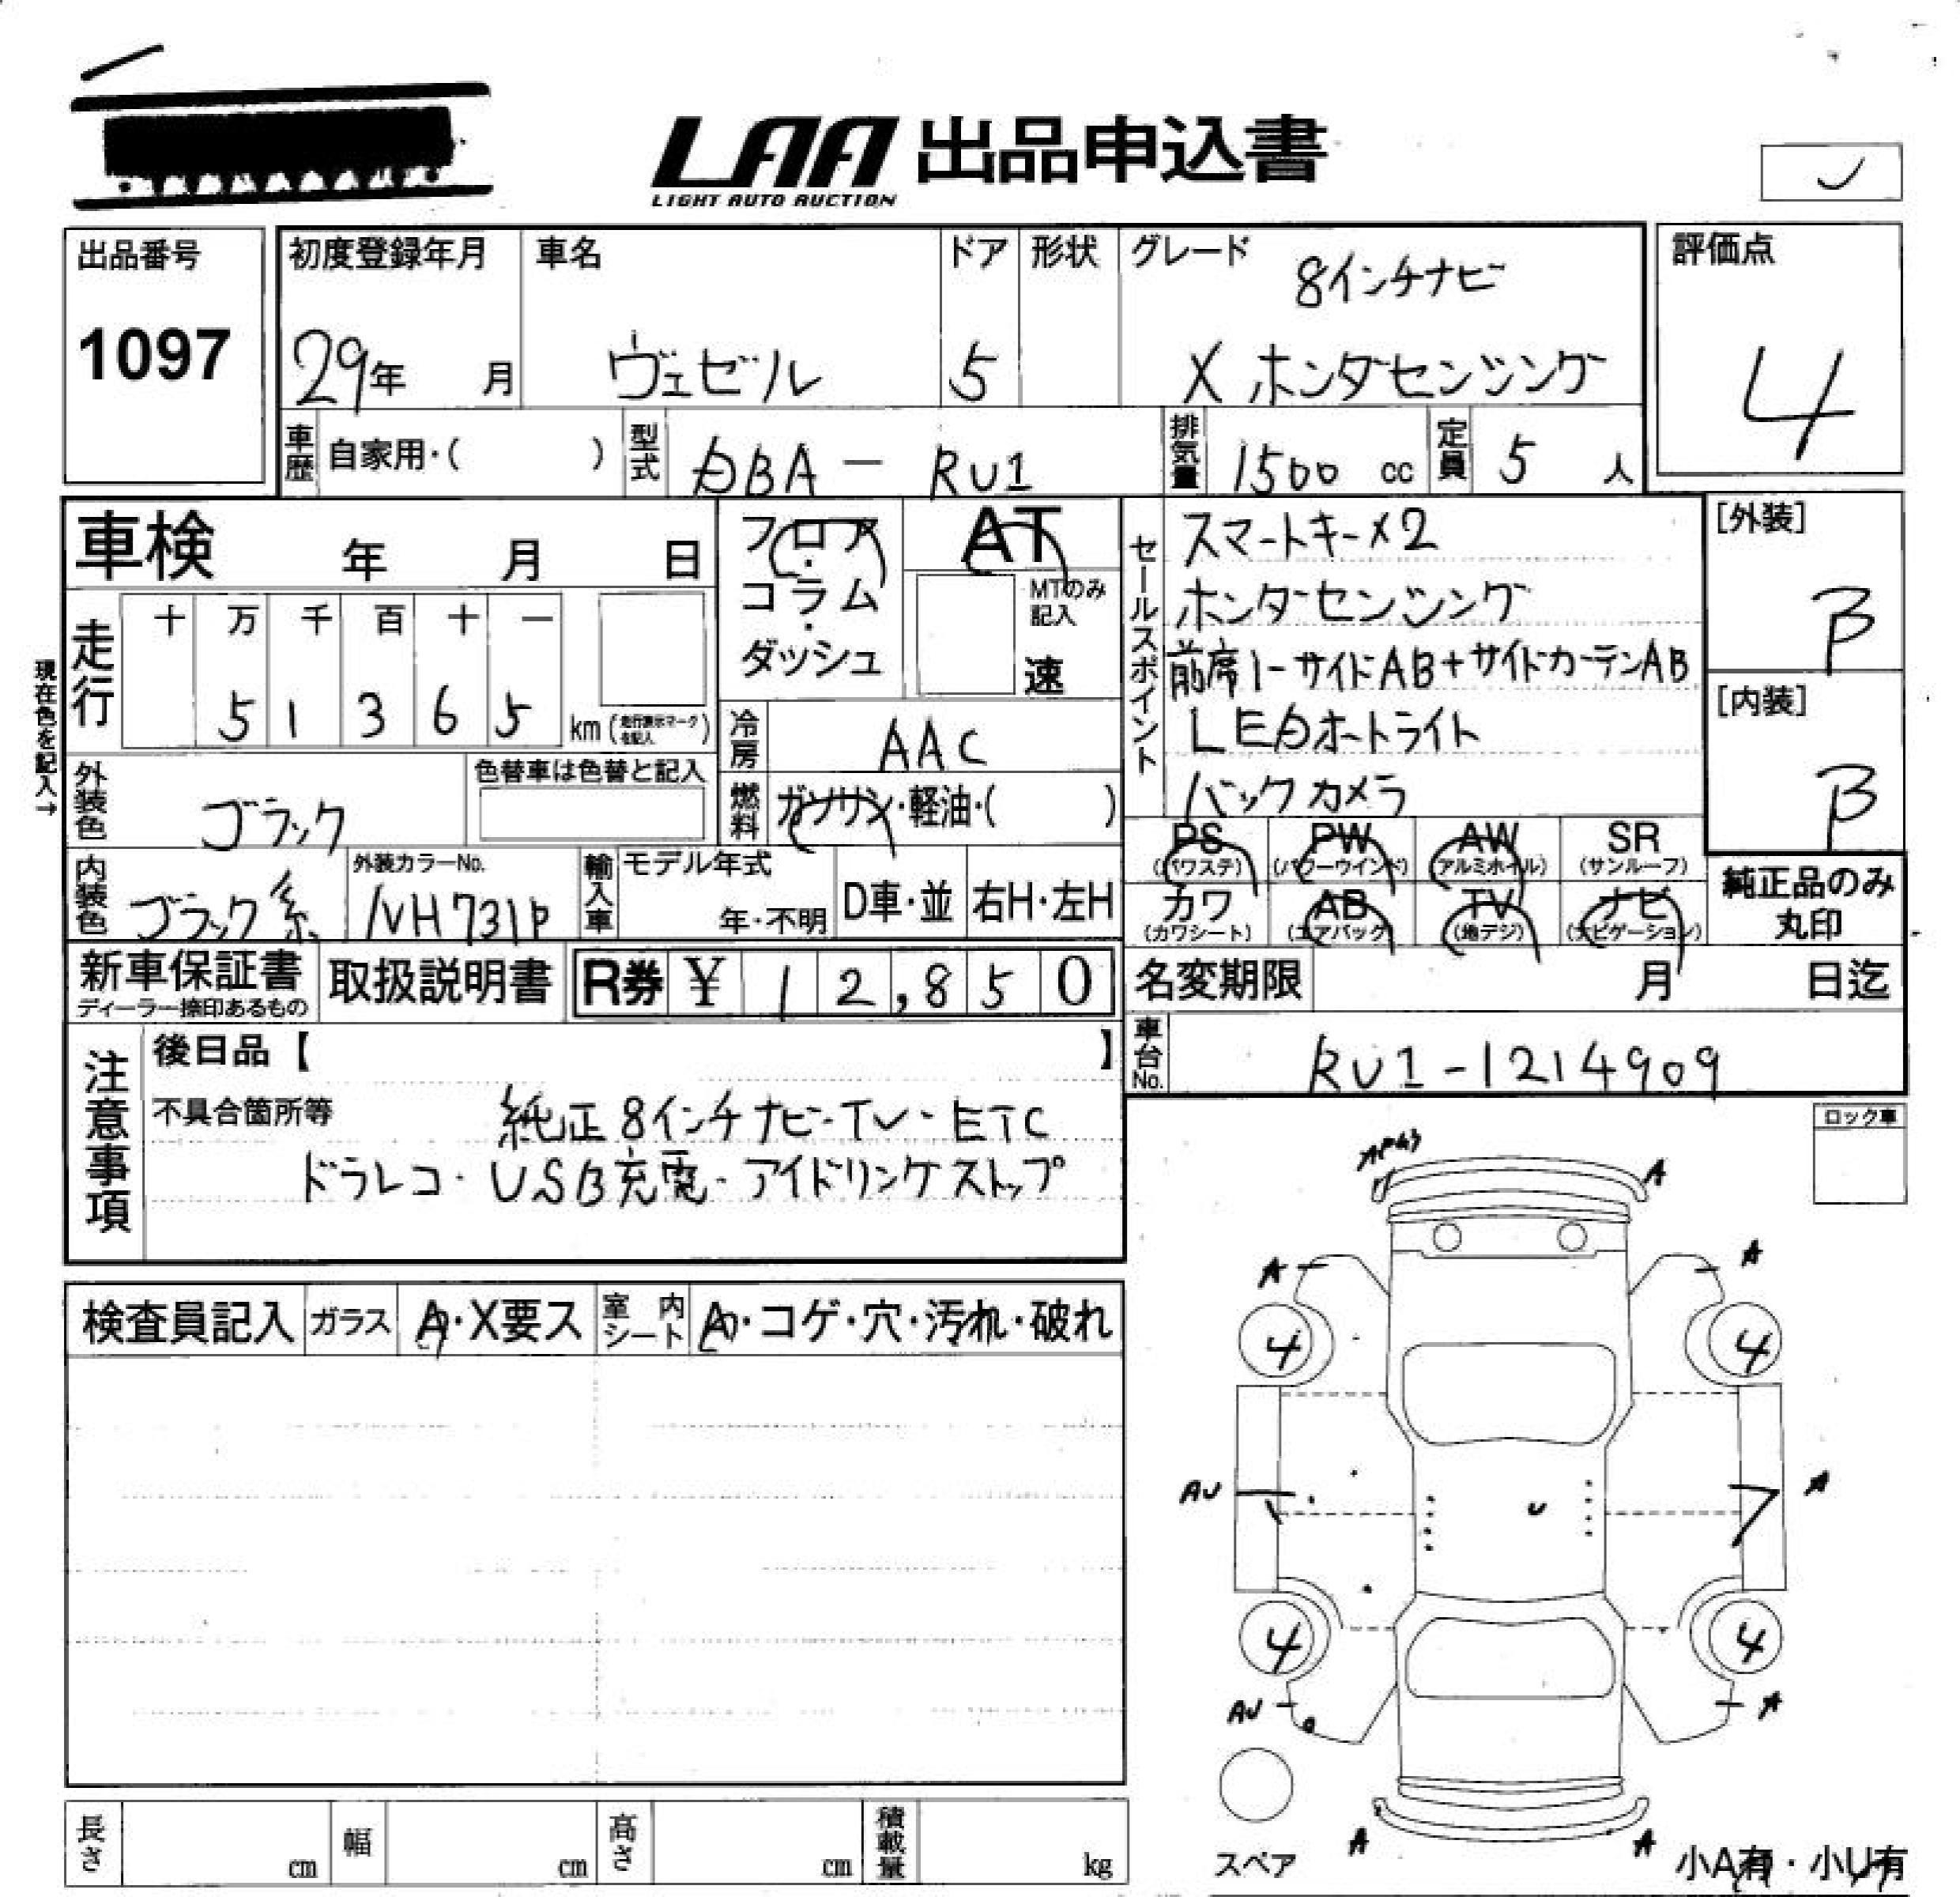 LAA 出品申込書
LIGHT AUTO AUCTION
出品番号
1097
初度登録年月
29年 月
車名
ヴェゼル
ドア
5
形状
グレード
8インチナビ
X ホンダセンシング
評価点
4
車歴 自家用・( )
型式 DBA - RU1
排気量 1500 cc
定員 5 人
車検 年 月 日
フロア・コラム・ダッシュ
AT
MTのみ記入
速
セールスポイント
スマートキー×2
ホンダセンシング
前席i-サイドAB+サイドカーテンAB
LEDオートライト
バックカメラ
[外装]
B
[内装]
B
現在色を記入→
走行
十 万 千 百 十 一
5 1 3 6 5 km (走行表示マークを記入)
冷房 AAC
外装色 ブラック
色替車は色替と記入
燃料 ガソリン・軽油・( )
PS (パワステ)
PW (パワーウインド)
AW (アルミホイル)
SR (サンルーフ)
カワ (カワシート)
AB (エアバック)
TV (地デジ)
ナビ (ナビゲーション)
純正品のみ
丸印
内装色 ブラック系
外装カラーNo.
NH731P
輸入車
モデル年式
年・不明
D車・並
右H・左H
新車保証書
ディーラー捺印あるもの
取扱説明書
R券 ¥ 1 2,8 5 0
名変期限 月 日迄
車台No. RU1-1214909
注意事項
後日品【 】
不具合箇所等 純正8インチナビ-TV-ETC
ドラレコ・USB充電・アイドリングストップ
ロック車
A
A
A
検査員記入
ガラス
A・X要ス
室内シート
コゲ・穴・汚れ・破れ
4
4
AU
U
A
4
4
AU
A
スペア
A
A
小A有・小U有
長さ cm
幅 cm
高さ cm
積載量 kg